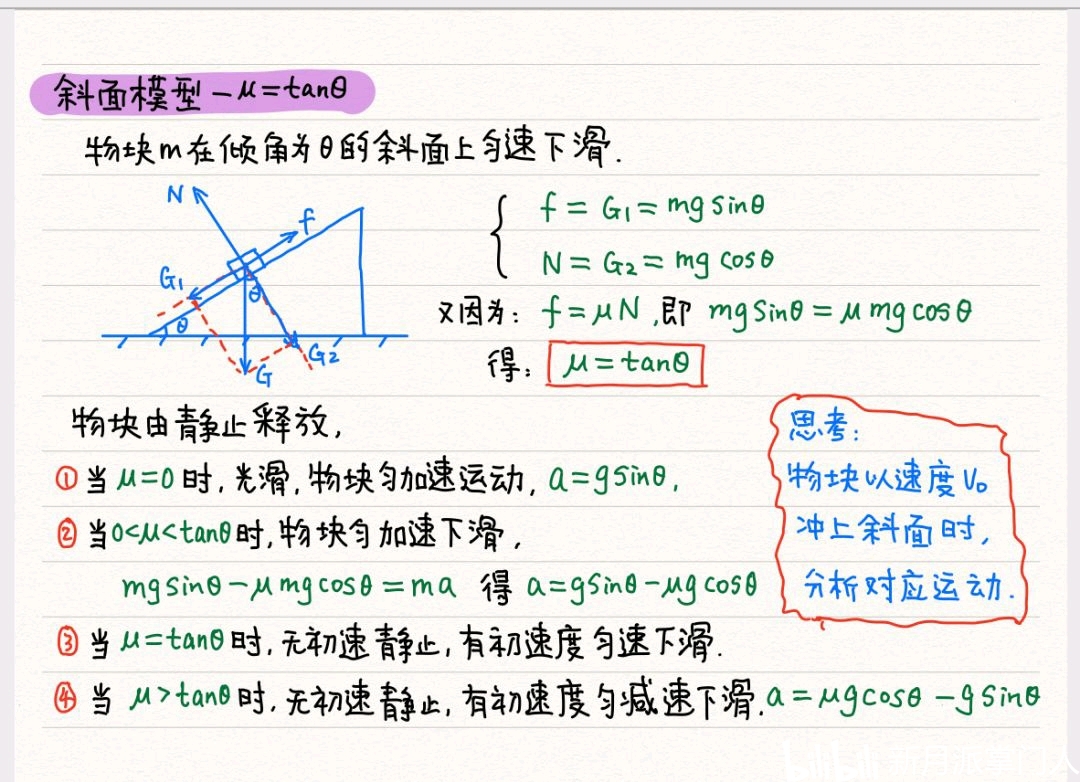 斜面模型－μ=tanθ
物块m在倾角为θ的斜面上匀速下滑.
N
f
G₁
θ
θ
G₂
G
f = G₁ = mg sinθ
N = G₂ = mg cosθ
又因为: f = μN, 即 mg sinθ = μ mg cosθ
得: μ = tanθ
物块由静止释放,
① 当 μ=0 时, 光滑, 物块匀加速运动, a=gsinθ,
② 当 0<μ<tanθ 时, 物块匀加速下滑,
mgsinθ－μmgcosθ=ma 得 a=gsinθ－μgcosθ
③ 当 μ=tanθ 时, 无初速静止, 有初速度匀速下滑.
④ 当 μ>tanθ 时, 无初速静止, 有初速度匀减速下滑. a=μgcosθ－gsinθ
思考:
物块以速度V₀
冲上斜面时,
分析对应运动.
bilibili